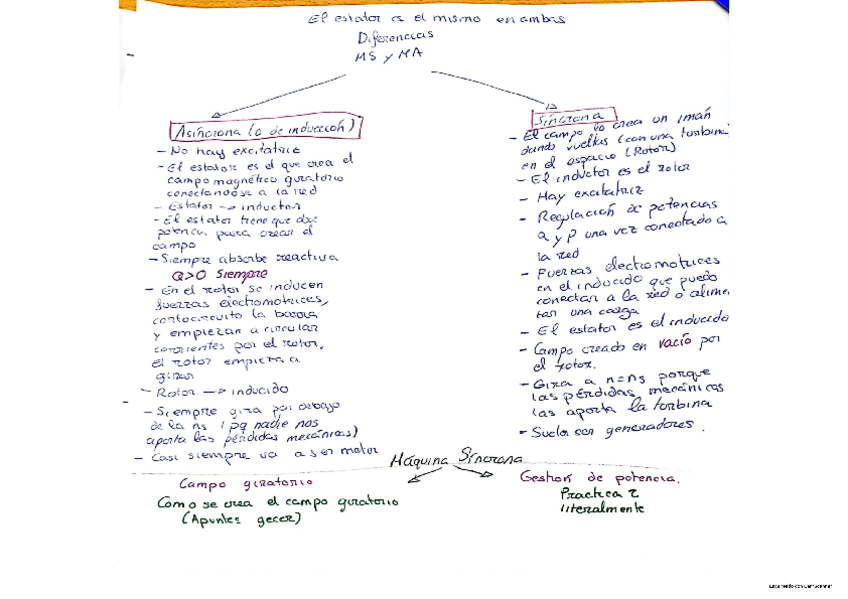 El estator es el mismo en ambas
Diferencias
MS y MA
Asíncrona (o de inducción)
- No hay excitatriz
- El estator es el que crea el
campo magnético giratorio
conectandose a la red
- Estator → inductor
- El estator tiene que
potencia para crear el
campo
- Siempre absorbe reactiva
Q>0 Siempre
- En el rotor se inducen
fuerzas electromotrices,
cortocircuito la
y empiezan a circular
corrientes por el rotor,
el rotor empieza a
girar
- Rotor → inducido
- Siempre gira por debajo
de la ns (pq nadie nos
aporta las pérdidas mecánicas)
- Casi siempre va a ser motor
Síncrona
- El campo lo crea un imán
dando vueltas (con una turbina
en el espacio (Rotor)
- El inductor es el rotor
- Hay excitatriz
- Regulación de potencias
Q y P una vez conectado a
la red
- Fuerzas electromotrices
en el inducido que puedo
conectar a la red o alimen
tar una carga
- El estator es el inducido
- Campo creado en vacío por
el rotor.
- Gira a n=ns porque
las pérdidas mecánicas
las aporta la turbina
- Suelen ser generadores.
Máquina Síncrona
Campo giratorio
Como se crea el campo giratorio
(Apuntes gecer)
Gestión de potencia.
Practica 2
literalmente